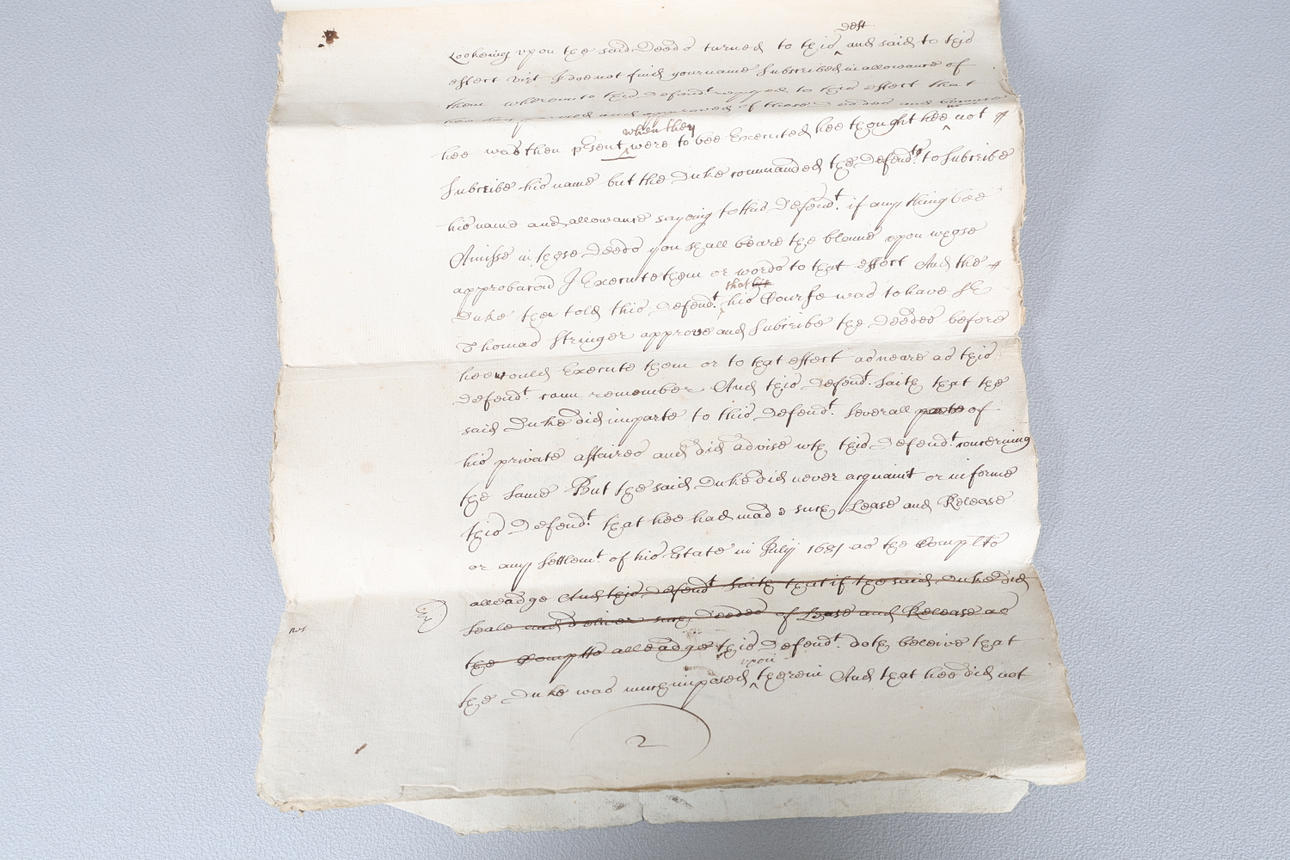 Lookeing upon the said Deeds turned to this ^deft and said to this
effect vizt I doe not find your name Subscribed in allowance of
them whereunto this defendt replyed to this effect that
hee had perused and approved of those deedes and
hee was then psent ^when they were to bee Executed hee thought hee ^ not
Subscribe his name but the Duke commanded the defendt to to Subscribe
his name and allowance sayeing to this Defendt if any thing bee
Amisse in these Deeds you shall beare the blame upon whose
approbacon I Execute them or words to that effect And the
Duke then told this defendt ^that his his Course was to have Sr
Thomas Stringer approve and Subscribe the Deedes before
hee would Execute them or to that effect as neare as this
defendt cann remember And this defendt Saith that the
said Duke did imparte to this Defendt Severall parte of
his private affaires and did advise wth this Defendt concerning
the Same But the said Duke did never acquaint or informe
this Defendt that hee had made such Lease and Release
or any Settlemt of his Estate in July 1681 as the Complts
alleadge And this defendt Saith that if the said Duke did
Seale and deliver such deedes of Lease and Release as
the Complts alleadge this Defendt doth beleive that
the Duke was much imposed ^upon therein And that hee did not
2